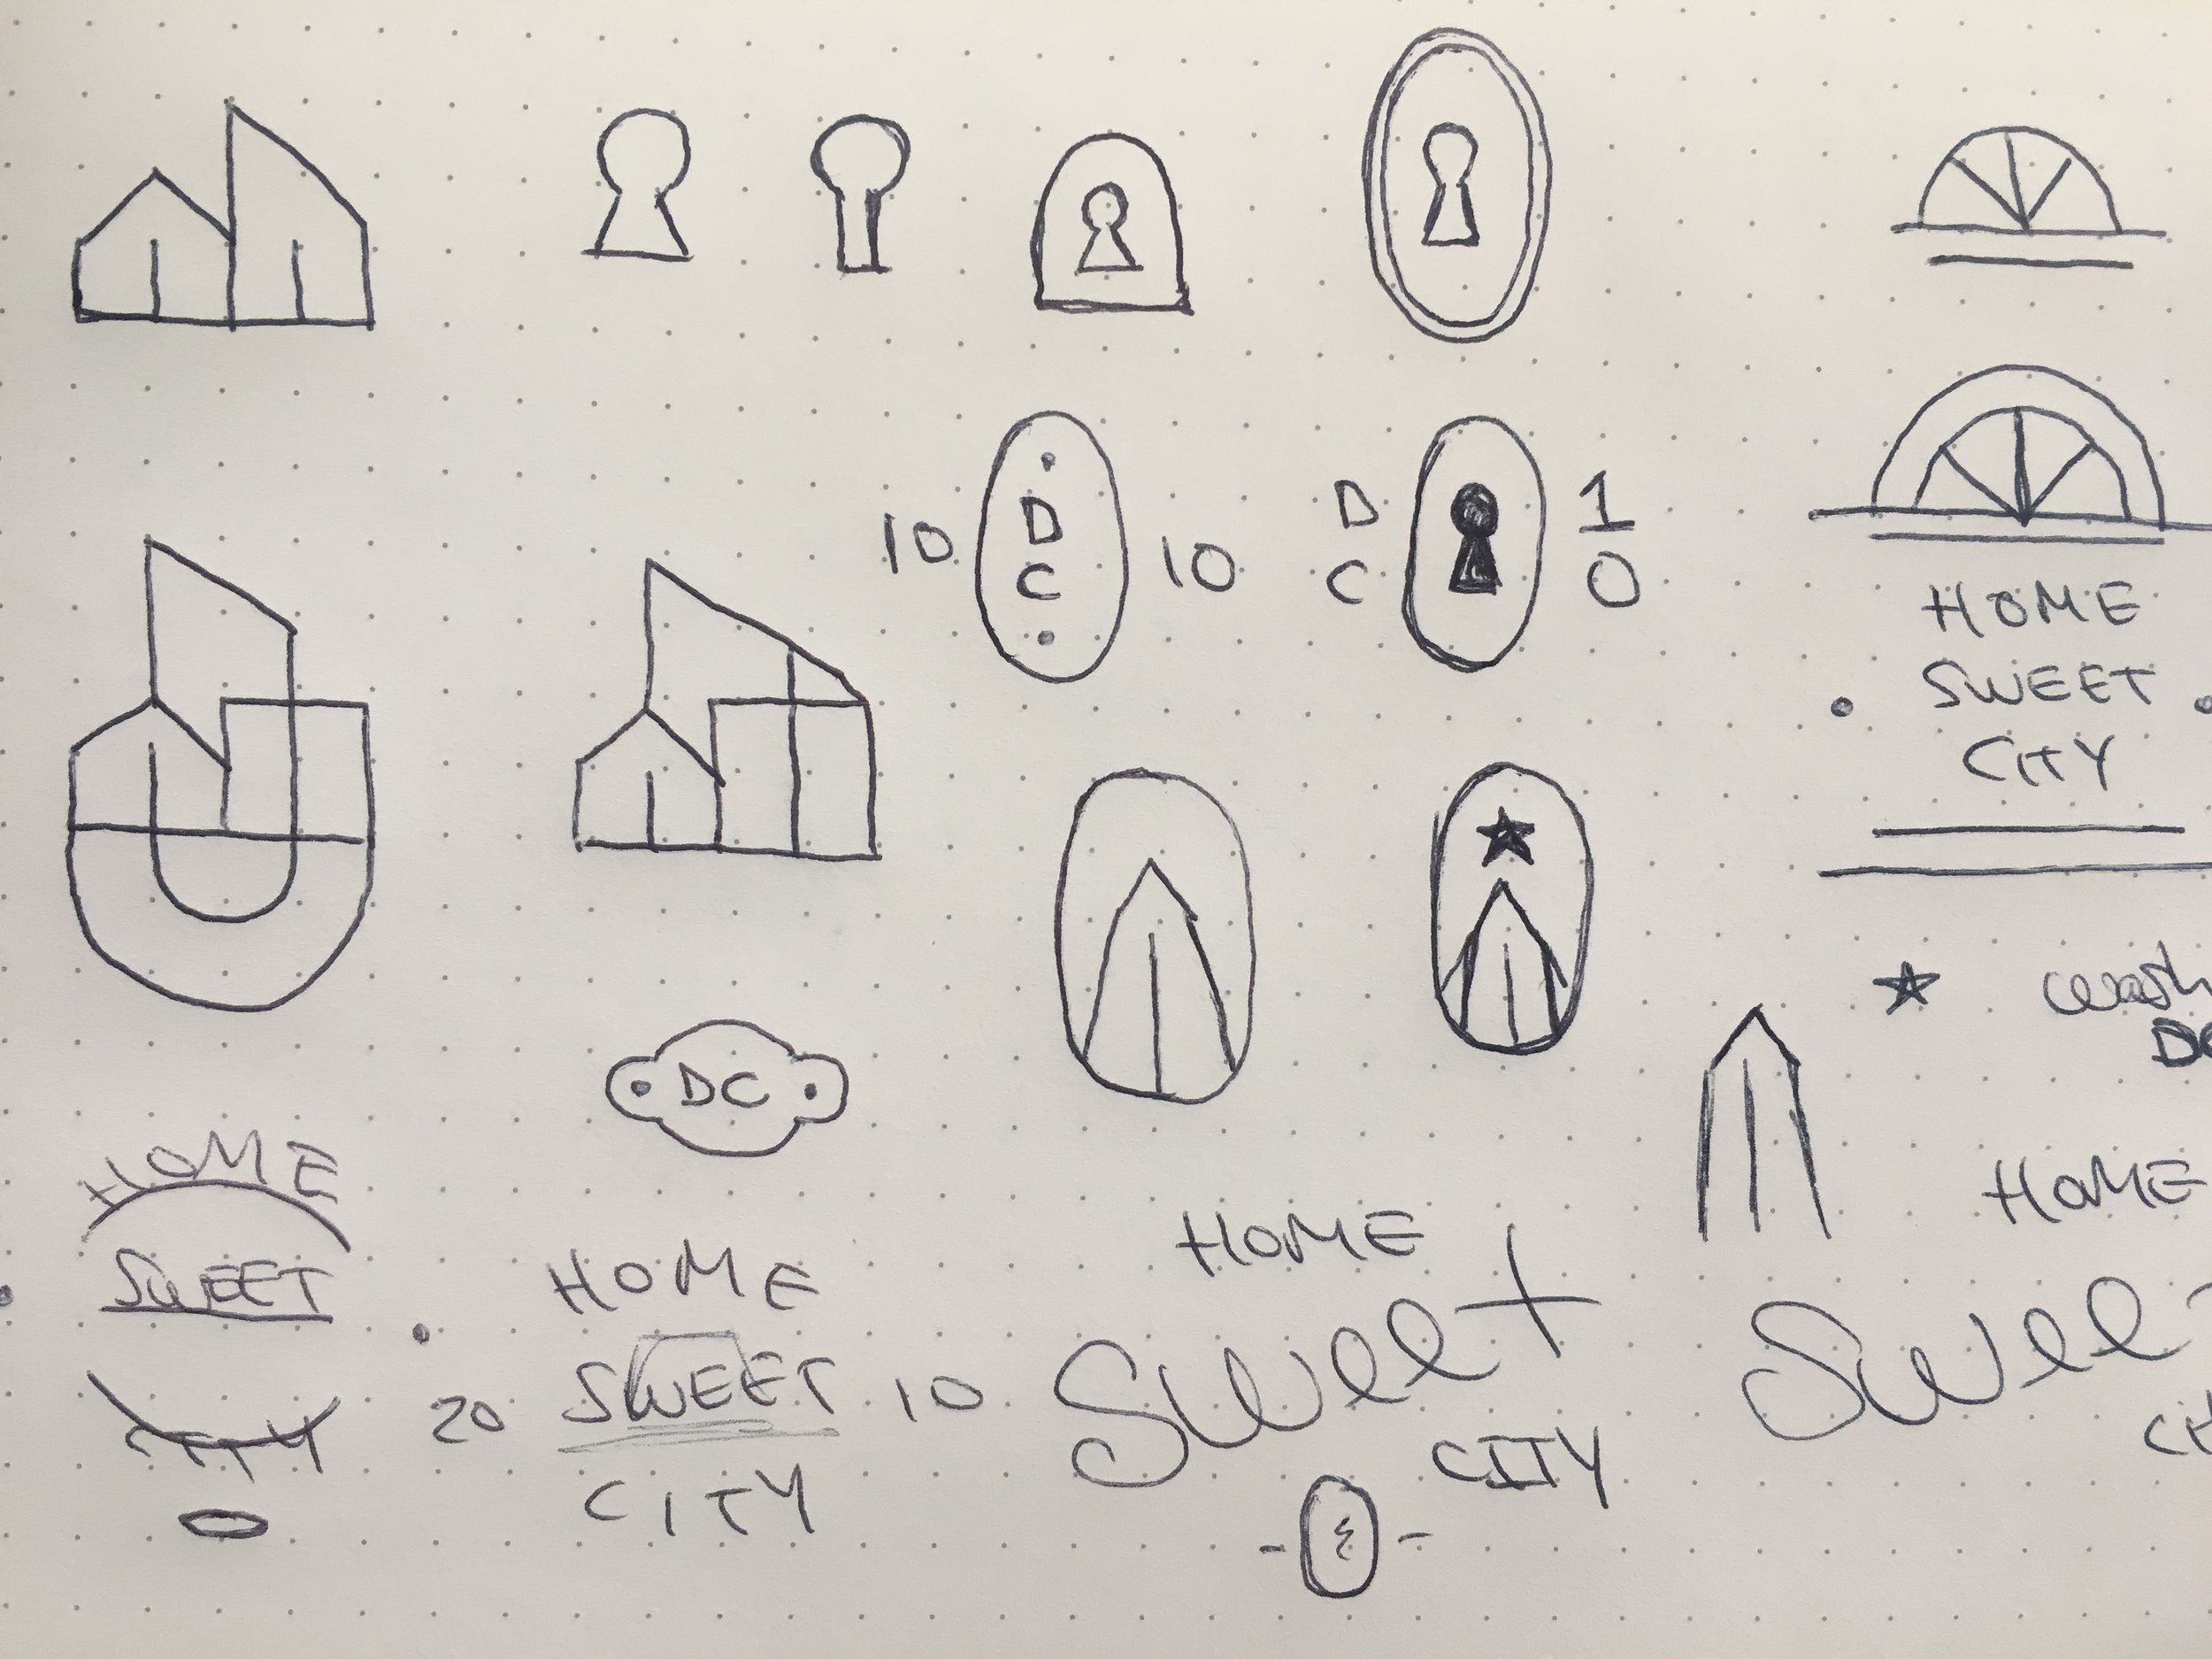 10 D C 10
D C 1 0
HOME
SWEET
CITY
wash
DC
DC
HOME
SWEET
CITY
HOME
20 SWEET 10
CITY
HOME
Sweet
CITY
&
HOME
Swee
CI